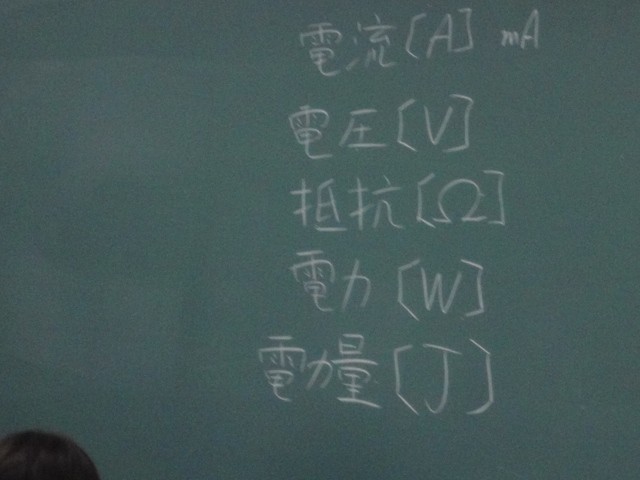 電流[A] mA
電圧[V]
抵抗[Ω]
電力[W]
電力量[J]